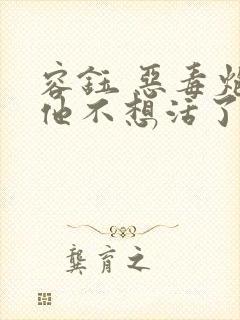 容鈺 惡毒炮
他不想活了
龔育之